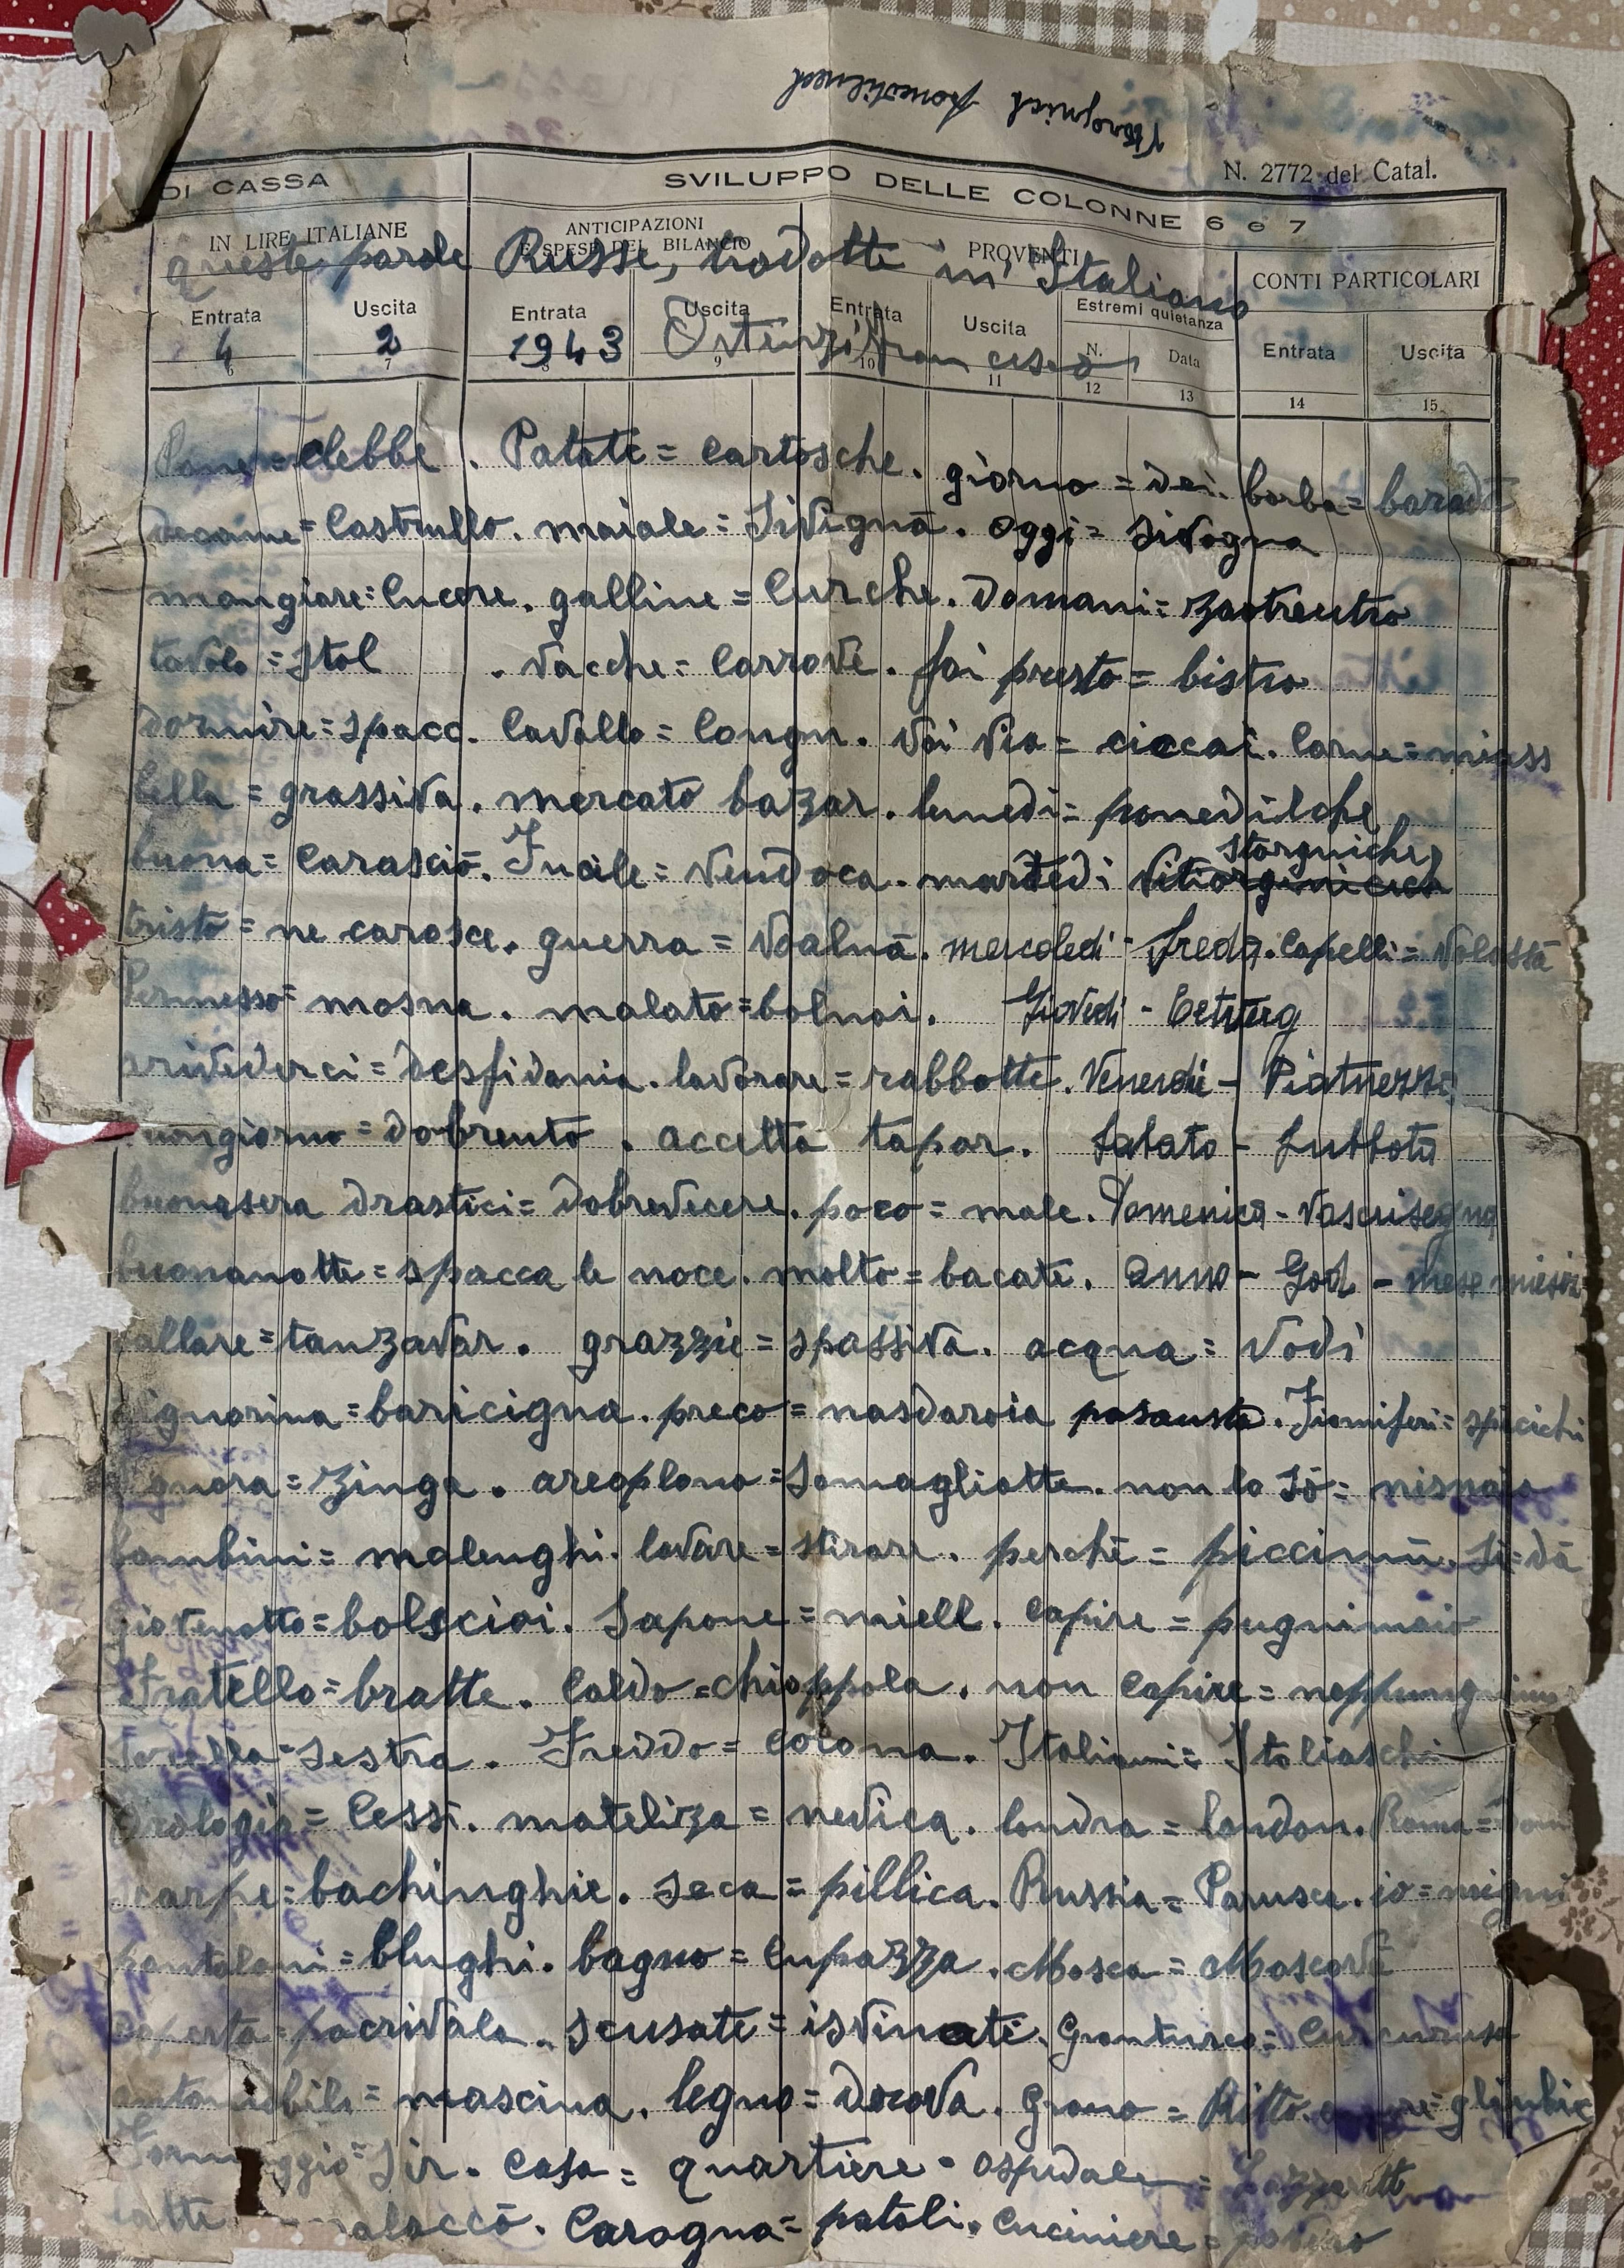 N. 2772 del Catal.
DI CASSA SVILUPPO DELLE COLONNE 6 e 7
IN LIRE ITALIANE ANTICIPAZIONI E SPESE DEL BILANCIO PROVENTI CONTI PARTICOLARI
queste parole Russe, tradotte in Italiano
Entrata Uscita Entrata Uscita Entrata Uscita Estremi quietanza Entrata Uscita
N. Data
4 2 1943 Ortenzi Francesco
6 7 8 9 10 11 12 13 14 15
Pane = clebbe. Patate = cartosche. giorno = dei. barba = barada
= Castrullo. maiale = Sivignā. oggi = sivogna
mangiare = Cucere. galline = Curche. Domani = zaotreutro
tavolo = Stol. vacche = Carrove. fai presto = bistro
dormire = spacc. Cavallo = Congn. vai via = ciccai. Carne = miass
bella = grassiva. mercato bazar. lunedi = ponedilche
storgniche
buona = carasciō. Fucile = vendoca. martedi
tristo = ne carosce. guerra = voalnā. mercoledi - sreda. Capelli = Volossā
Permesso = mosna. malato = bolnoi. Giovedi - Cetverg
arivederci = desfidania. lavorare = rabbotte. Venerdie - Piatnezza
uongiorno = dobrento. accetta tapar. Sabato - Subbota
buonasera drastici = dobrevecere. poco = male. Domenica - Vascrisegna
buonanotte = spacca le noce. molto = bacate. Anno - God - mese
allare = tanzavar. grazzie = spassiva. acqua = Vodi
ignorina = baricigna. preco = nasdaroia posausta. Fiomiferi = spicichi
gnora = Zinga. areoplono = Somagliotte. non lo sō = nisnaia
bambini = malenghi. lavare = stirare. perchē = piccimū. Si = dā
giovenotto = bolscioi. Sapone = miell. capire = pugnimaio
Fratello = bratte. Caldo = chioppola. non capire =
Sorella = Sestra. Freddo = cocona. Italiani = Italiaschi
Orologio = Cessi. matelizza = nevica. londra = london. Roma =
scarpe = bachinghie. seca = pillica. Russia = Parusce. io =
pantaloni = blughi. bagno = Cupazza. Mosca = Moscovā
= pacrivala. scusate = isvinati. Granturco = Curcurusa
automobile = mascina. legno = dorova. Grano =
Formaggio = Sir. Casa = quartiere. ospedale = Lazzerett
latte Carogna = patoli. Cuciniere =